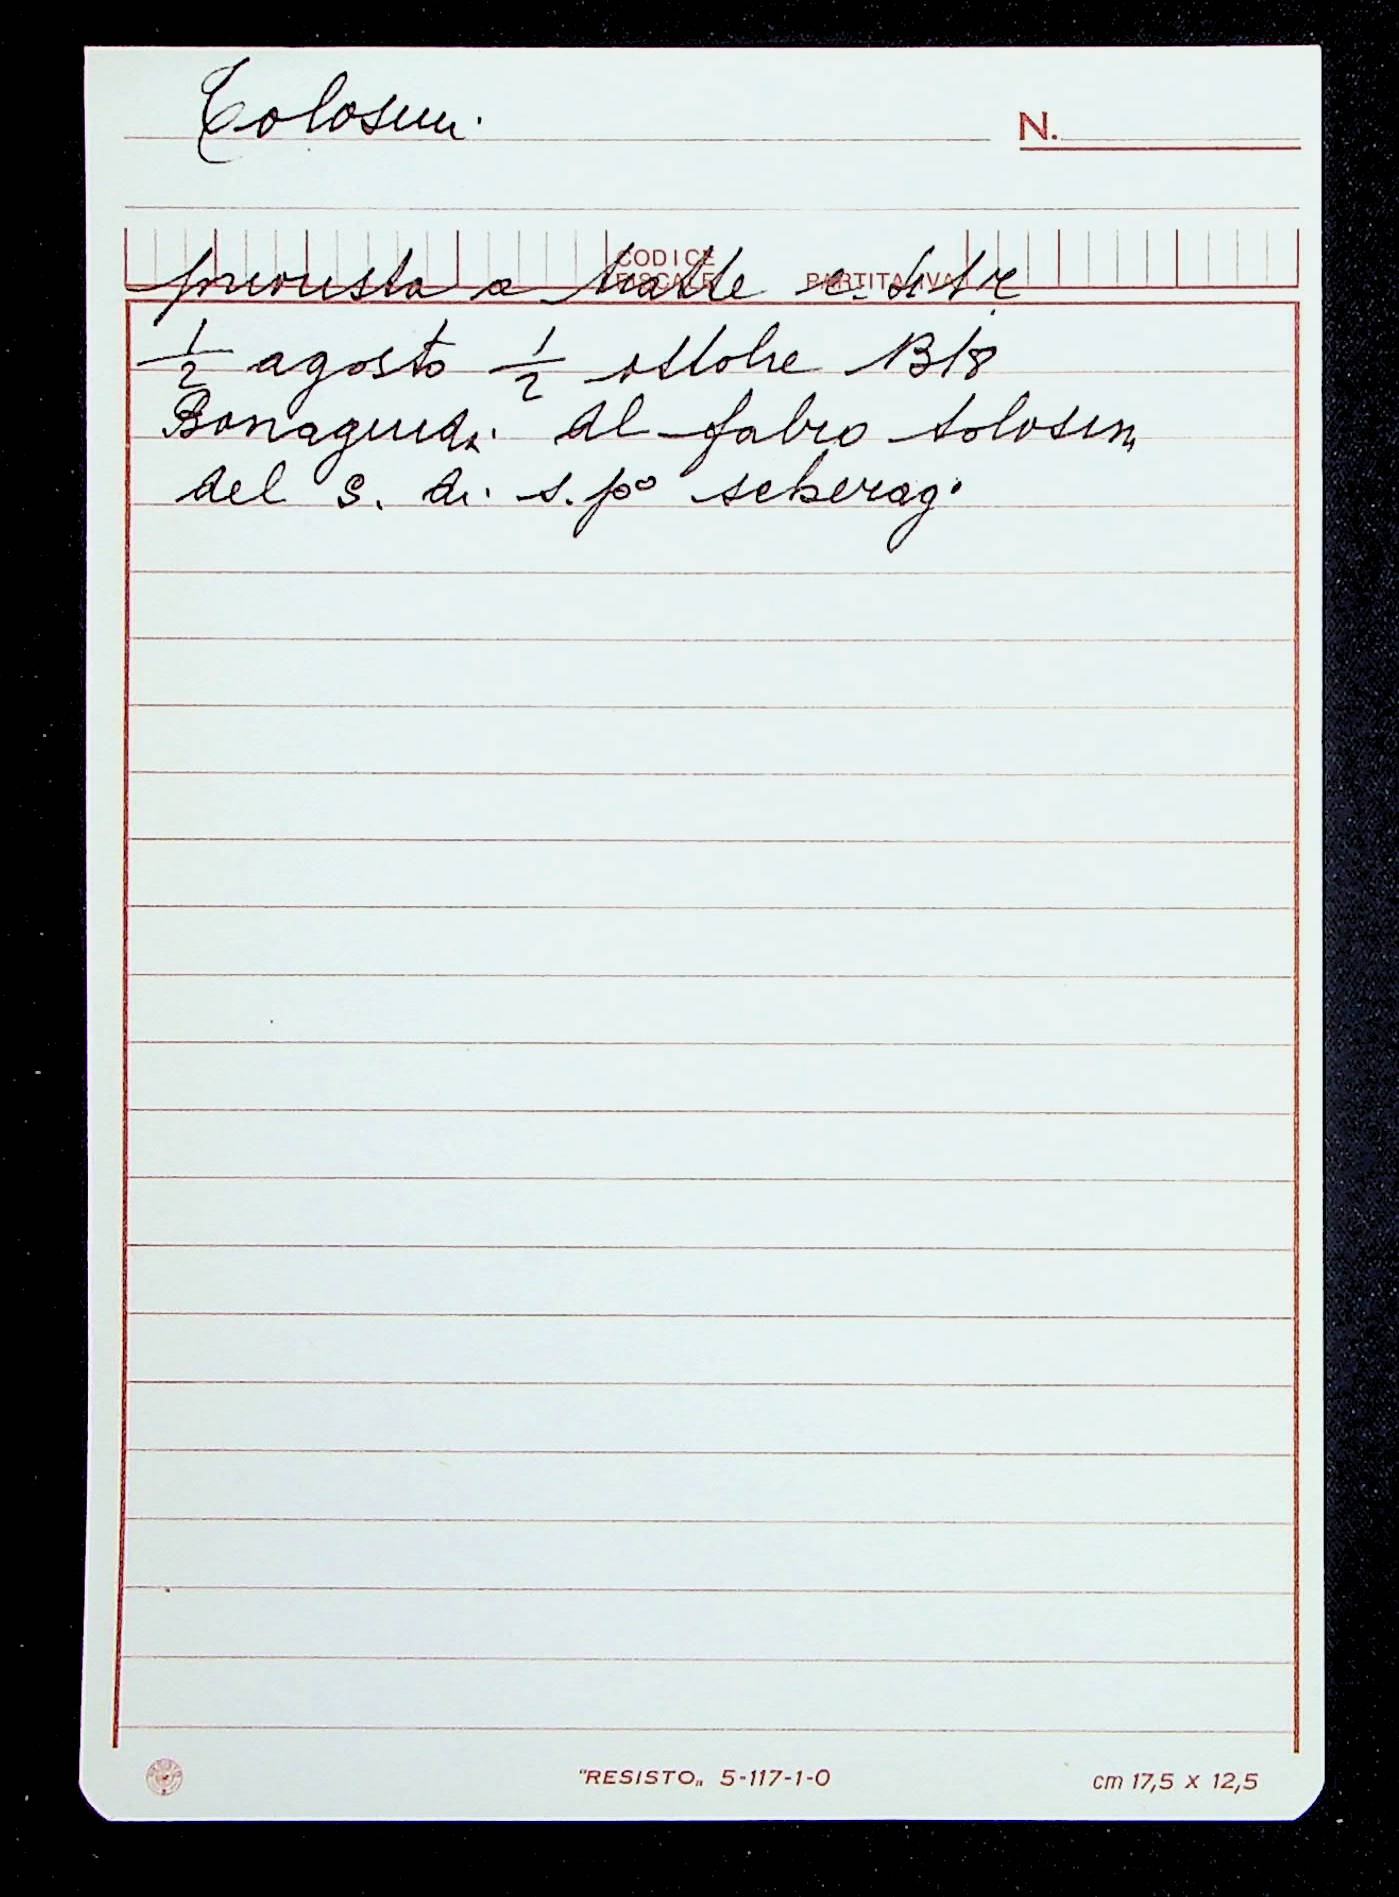 Tolosini
N.
CODICE FISCALE PARTITA IVA
priorista a tratte c. 
1/2 agosto 1/2 ottobre 1318
Bonaguida Del fabro tolosini
del S. di s. po scherag.
"RESISTO„ 5-117-1-0
cm 17,5 x 12,5